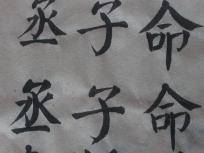 丞子命
丞子命